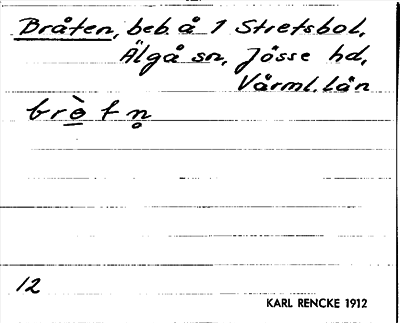 Bråten, beb. å 1 Stretsbol,
Älgå sn, Jösse hd,
Värml. län
brò̲ t n̥
12
KARL RENCKE 1912